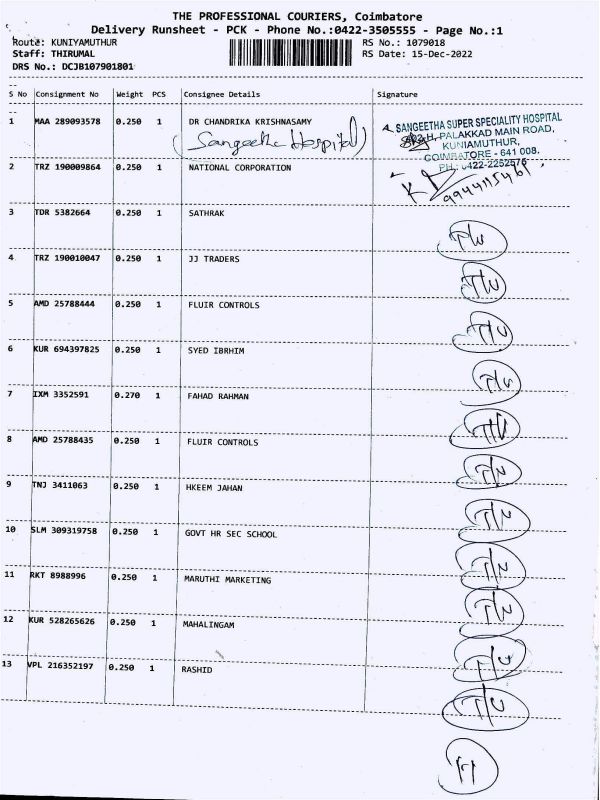 THE PROFESSIONAL COURIERS, Coimbatore
Delivery Runsheet - PCK - Phone No.:0422-3505555 - Page No.:1
Route: KUNIYAMUTHUR RS No.: 1079018
Staff: THIRUMAL RS Date: 15-Dec-2022
DRS No.: DCJB107901801
S No Consignment No Weight PCS Consignee Details Signature
1 MAA 289093578 0.250 1 DR CHANDRIKA KRISHNASAMY
(Sangeetha Hospital)
SANGEETHA SUPER SPECIALITY HOSPITAL
PALAKKAD MAIN ROAD,
KUNIAMUTHUR,
COIMBATORE - 641 008.
PH: 0422-2252576
2 TRZ 190009864 0.250 1 NATIONAL CORPORATION
3 TDR 5382664 0.250 1 SATHRAK
4 TRZ 190010047 0.250 1 JJ TRADERS
5 AMD 25788444 0.250 1 FLUIR CONTROLS
6 KUR 694397825 0.250 1 SYED IBRHIM
7 IXM 3352591 0.270 1 FAHAD RAHMAN
8 AMD 25788435 0.250 1 FLUIR CONTROLS
9 TNJ 3411063 0.250 1 HKEEM JAHAN
10 SLM 309319758 0.250 1 GOVT HR SEC SCHOOL
11 RKT 8988996 0.250 1 MARUTHI MARKETING
12 KUR 528265626 0.250 1 MAHALINGAM
13 VPL 216352197 0.250 1 RASHID